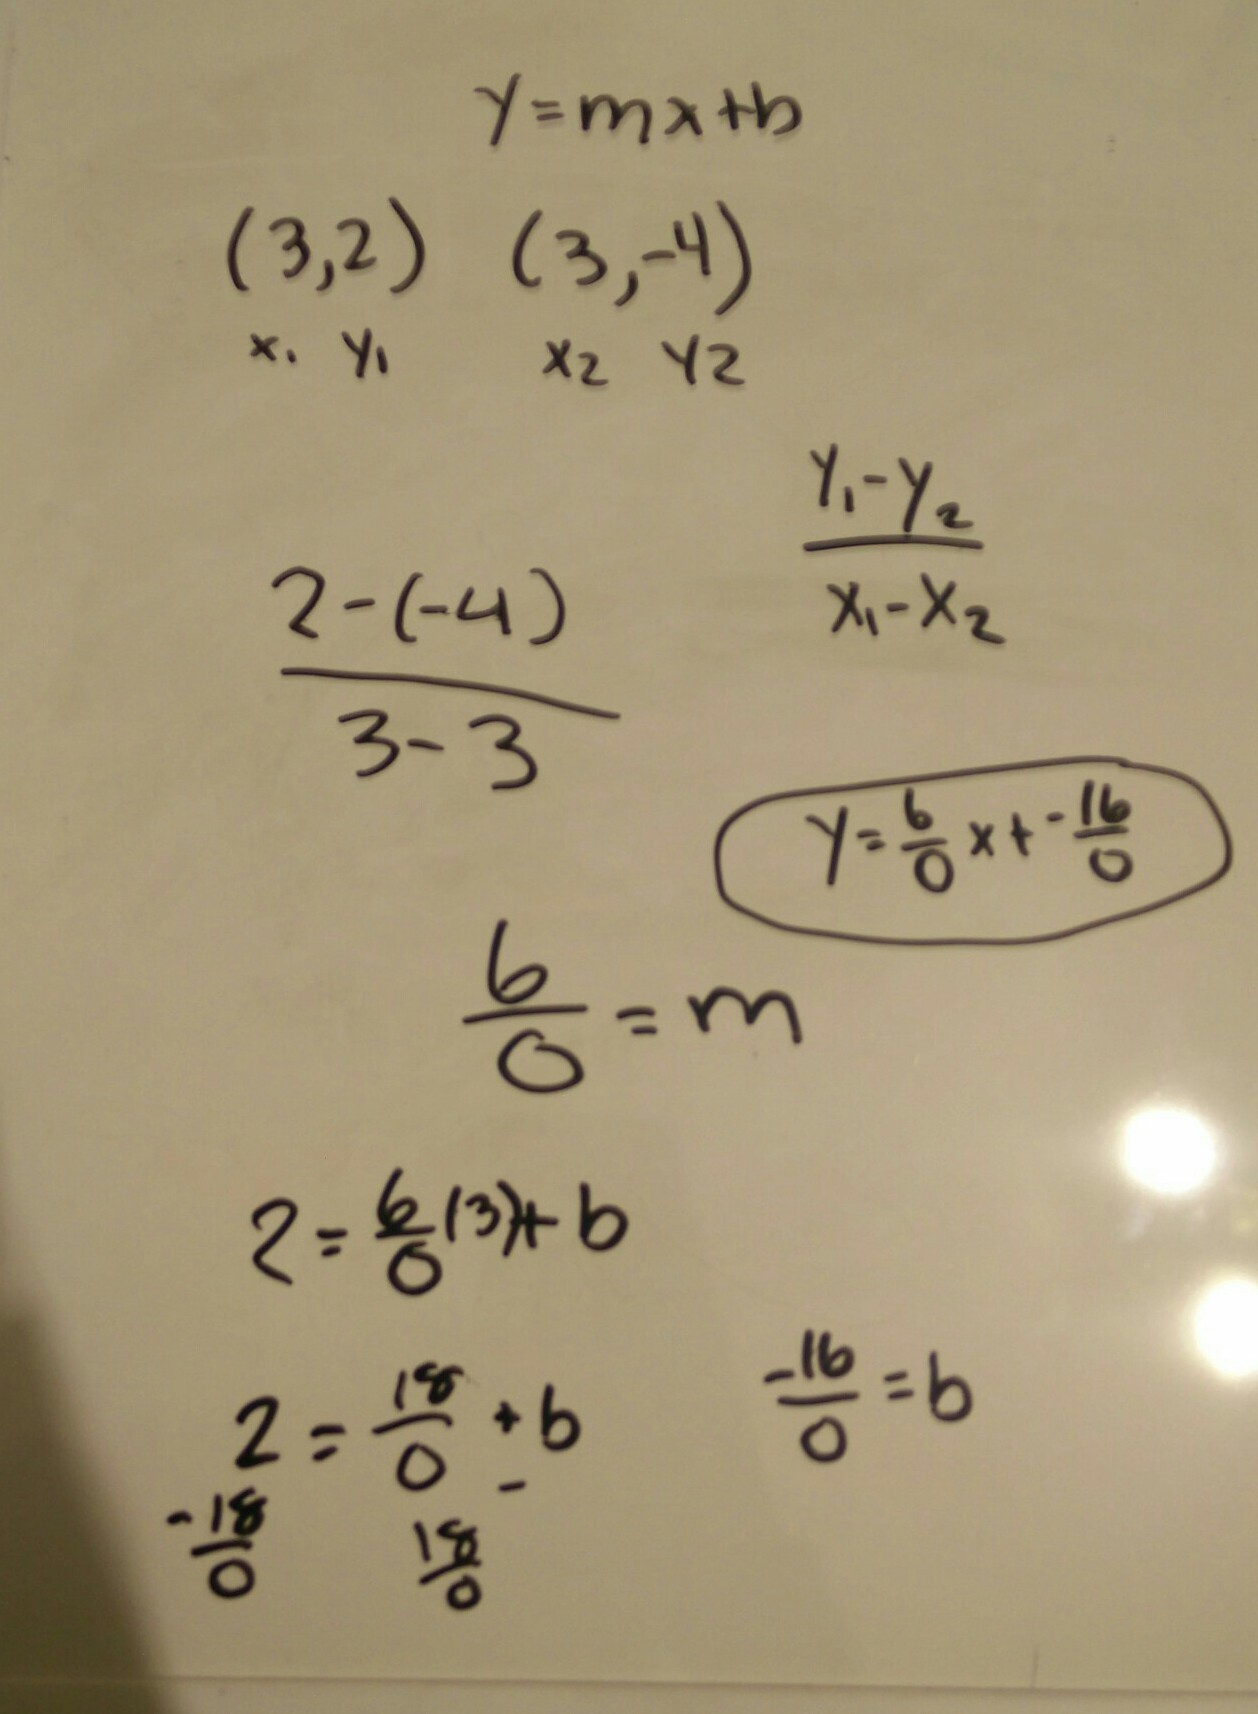 y=mx+b
(3,2) (3,-4)
x₁ y₁ x2 y2
y₁-y₂
x₁-x₂
2-(-4)
3-3
y=6/0 x+-16/0
6/0=m
2=6/0(3)+b
2=18/0+b
-18/0 -18/0
-16/0=b